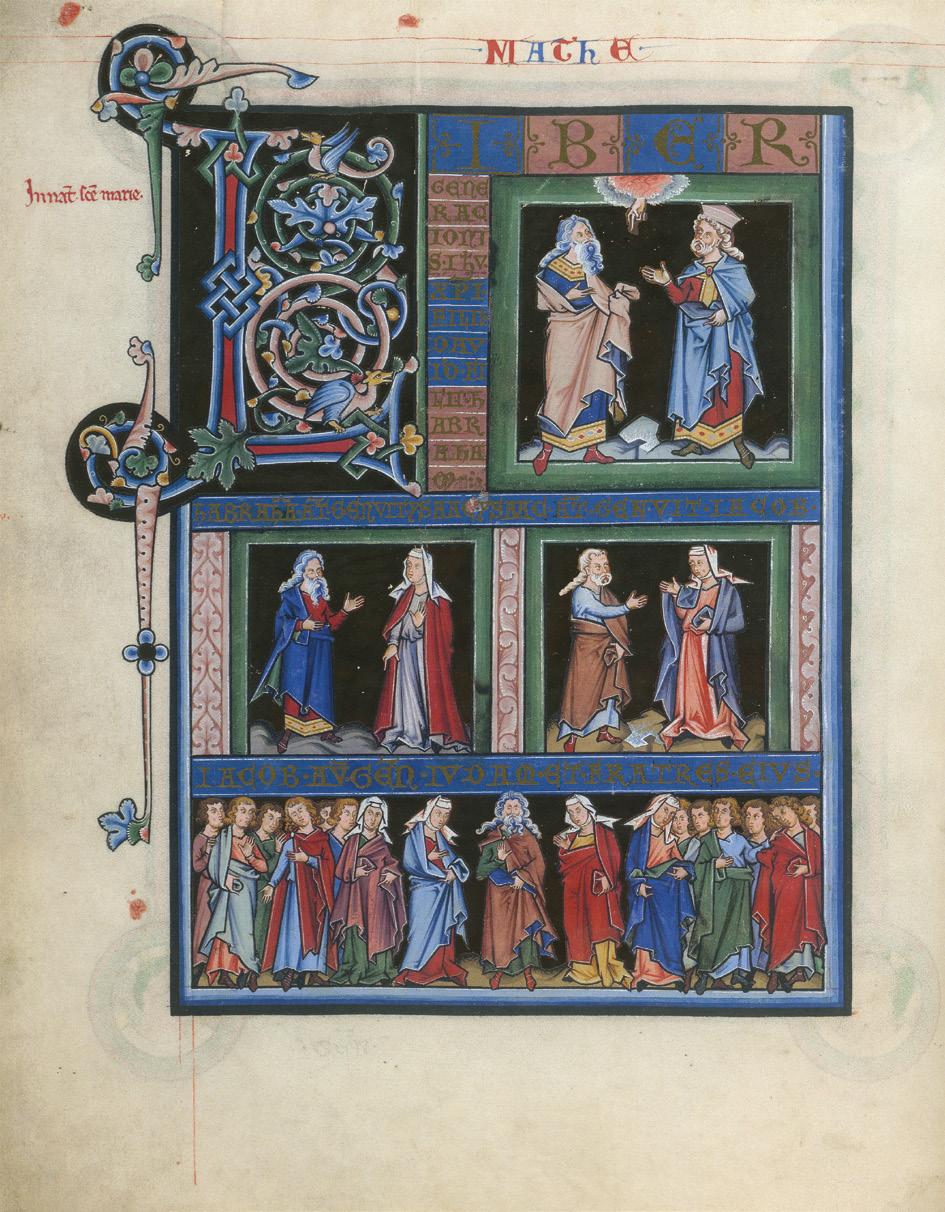 MATHE
In nat̄. sc̄e marie.
LIBER
GENE
RAC
IONI
S·IHV
XPI
FILII
DAV
ID·
FILII
ABR
AHA
M
HABRAHĀ AT̄·GENVIT YSAAC·YSAAC·AT̄·GENVIT·IACOB·
IACOB·AV̄·GEN̄·IVDAM·ET·FRATRES·EIVS·